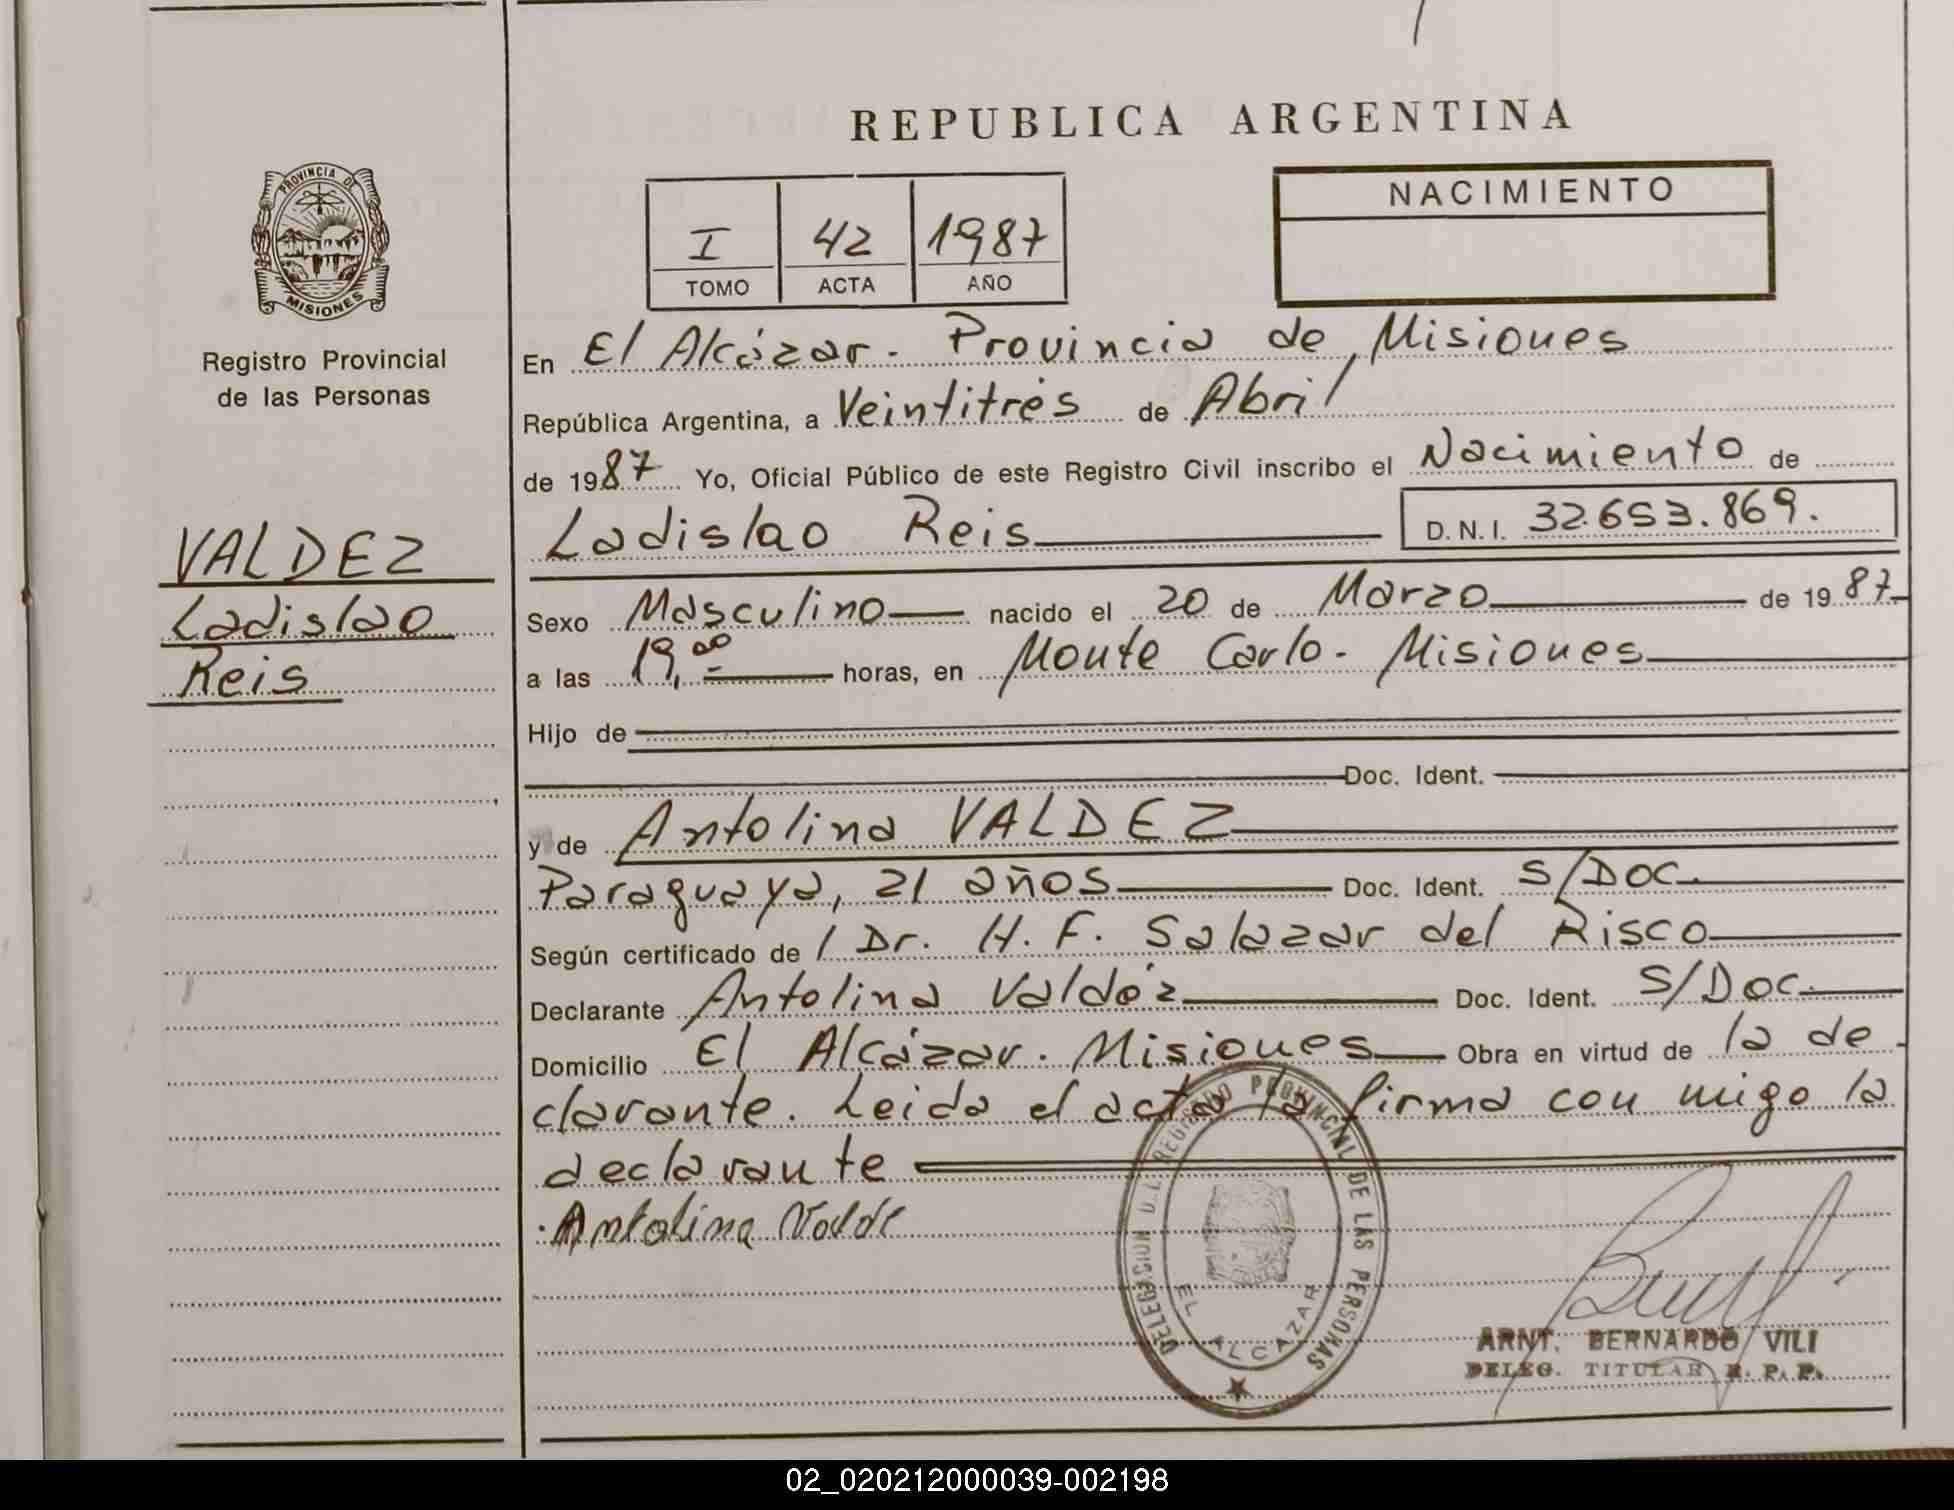 REPUBLICA ARGENTINA
PROVINCIA DE
MISIONES
Registro Provincial
de las Personas
VALDEZ
Ladislao
Reis
I 42 1987
TOMO ACTA AÑO
NACIMIENTO
En El Alcázar. Provincia de Misiones
República Argentina, a Veintitrés de Abril
de 1987 Yo, Oficial Público de este Registro Civil inscribo el Nacimiento de
Ladislao Reis D.N.I. 32.653.869.
Sexo Masculino nacido el 20 de Marzo de 1987
a las 19,00 horas, en Monte Carlo. Misiones
Hijo de
Doc. Ident.
y de Antolina VALDEZ
Paraguaya, 21 años Doc. Ident. S/DOC.
Según certificado de / Dr. H. F. Salazar del Risco
Declarante Antolina Valdéz Doc. Ident. S/Doc.
Domicilio El Alcázar. Misiones Obra en virtud de la de
clarante. Leida el acta la firma con migo la
declarante
Antolina Valde
DELEGASION D.L. REGISTRO PROVINCIAL DE LAS PERSONAS
EL ALCAZAR
ARNT. BERNARDO VILI
DELEG. TITULAR R. P. P.
02_020212000039-002198